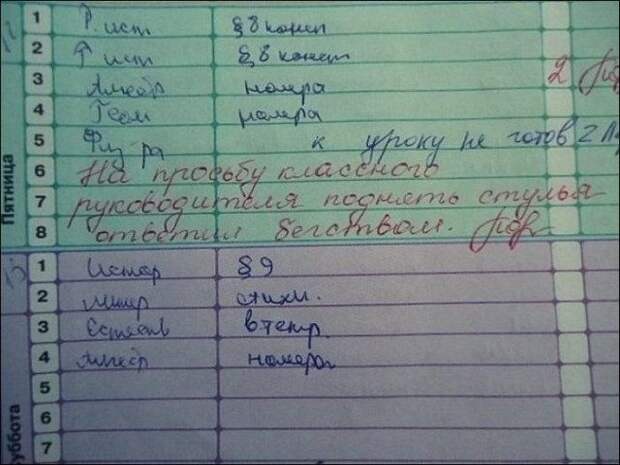 1 Р. ист § 8 консп
2 Р ист § 8 консп
3 Алгебр номера 2
4 Геом номера
5 Физ ра к уроку не готов 2
6 На просьбу классного
7 руководителя поднять стулья
8 ответил бегством.
Пятница
1 Истор § 9
2 Литер стихи.
3 Естеств в тетр
4 Алгебр номера
5
6
7
уббота